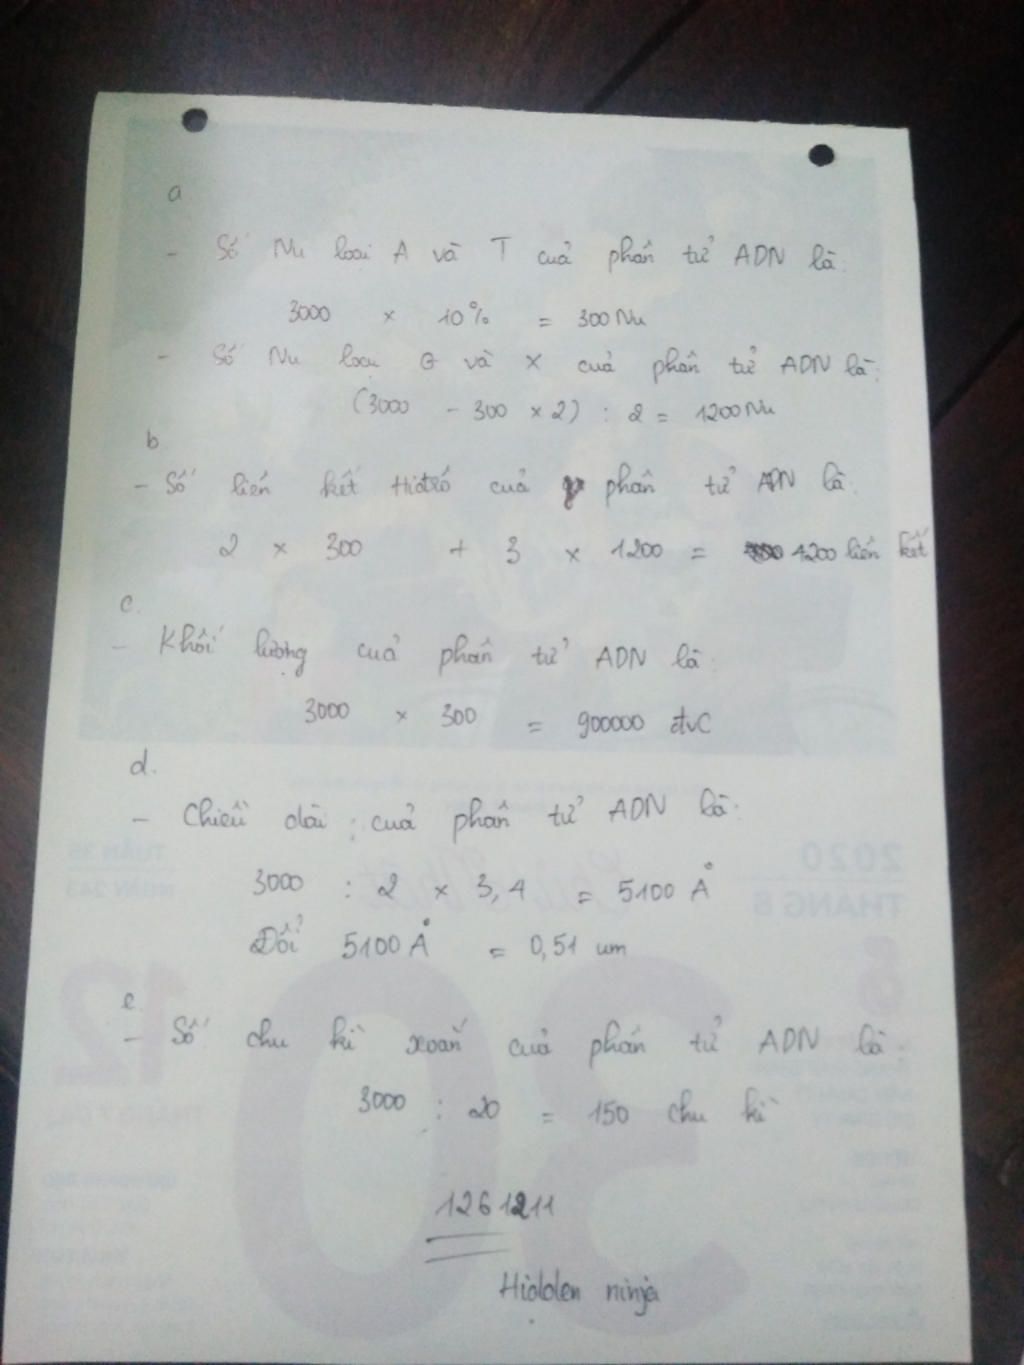 a
- Số Nu loại A và T của phân tử ADN là:
3000 x 10% = 300 Nu
- Số Nu loại G và X của phân tử ADN là:
(3000 - 300 x 2) : 2 = 1200 Nu
b
- Số liên kết Hiđrô của phân tử ADN là:
2 x 300 + 3 x 1200 = 4200 liên kết
c.
- Khối lượng của phân tử ADN là:
3000 x 300 = 900000 đvC
d.
- Chiều dài : của phân tử ADN là:
3000 : 2 x 3,4 = 5100 Å
Đổi 5100 Å = 0,51 um
e.
- Số chu kì xoắn của phân tử ADN là:
3000 : 20 = 150 chu kì
1261211
Hidden ninja
2020
THÁNG 8
TUẦN 35
NGÀY 243
30
12